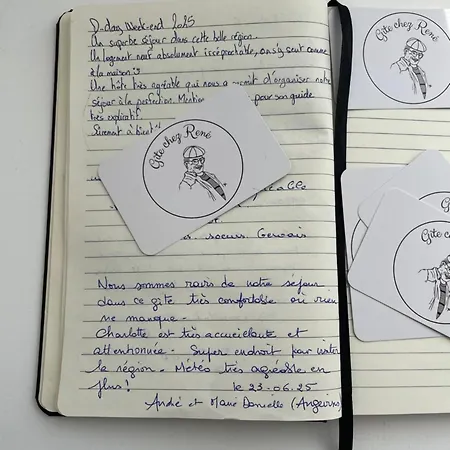 D-day week-end 2025
Un superbe séjour dans cette belle région.
Un logement neuf absolument irréprochable, on s'y sent comme
à la maison :)
Une hôte très agréable qui nous a permit d'organiser notre
séjour à la perfection. Mention pour son guide
très explicatif.
Surement à bientôt
Gîte chez René
soeurs Gervais
Nous sommes ravis de notre séjour
dans ce gîte très confortable où rien
ne manque -
Charlotte est très accueillante et
attentionnée - Super endroit pour visiter
la région - Météo très agréable en
plus !
le 23-06-25
André et Marie Danielle (Angevins)
Gîte chez René
Gîte chez René
Gîte c